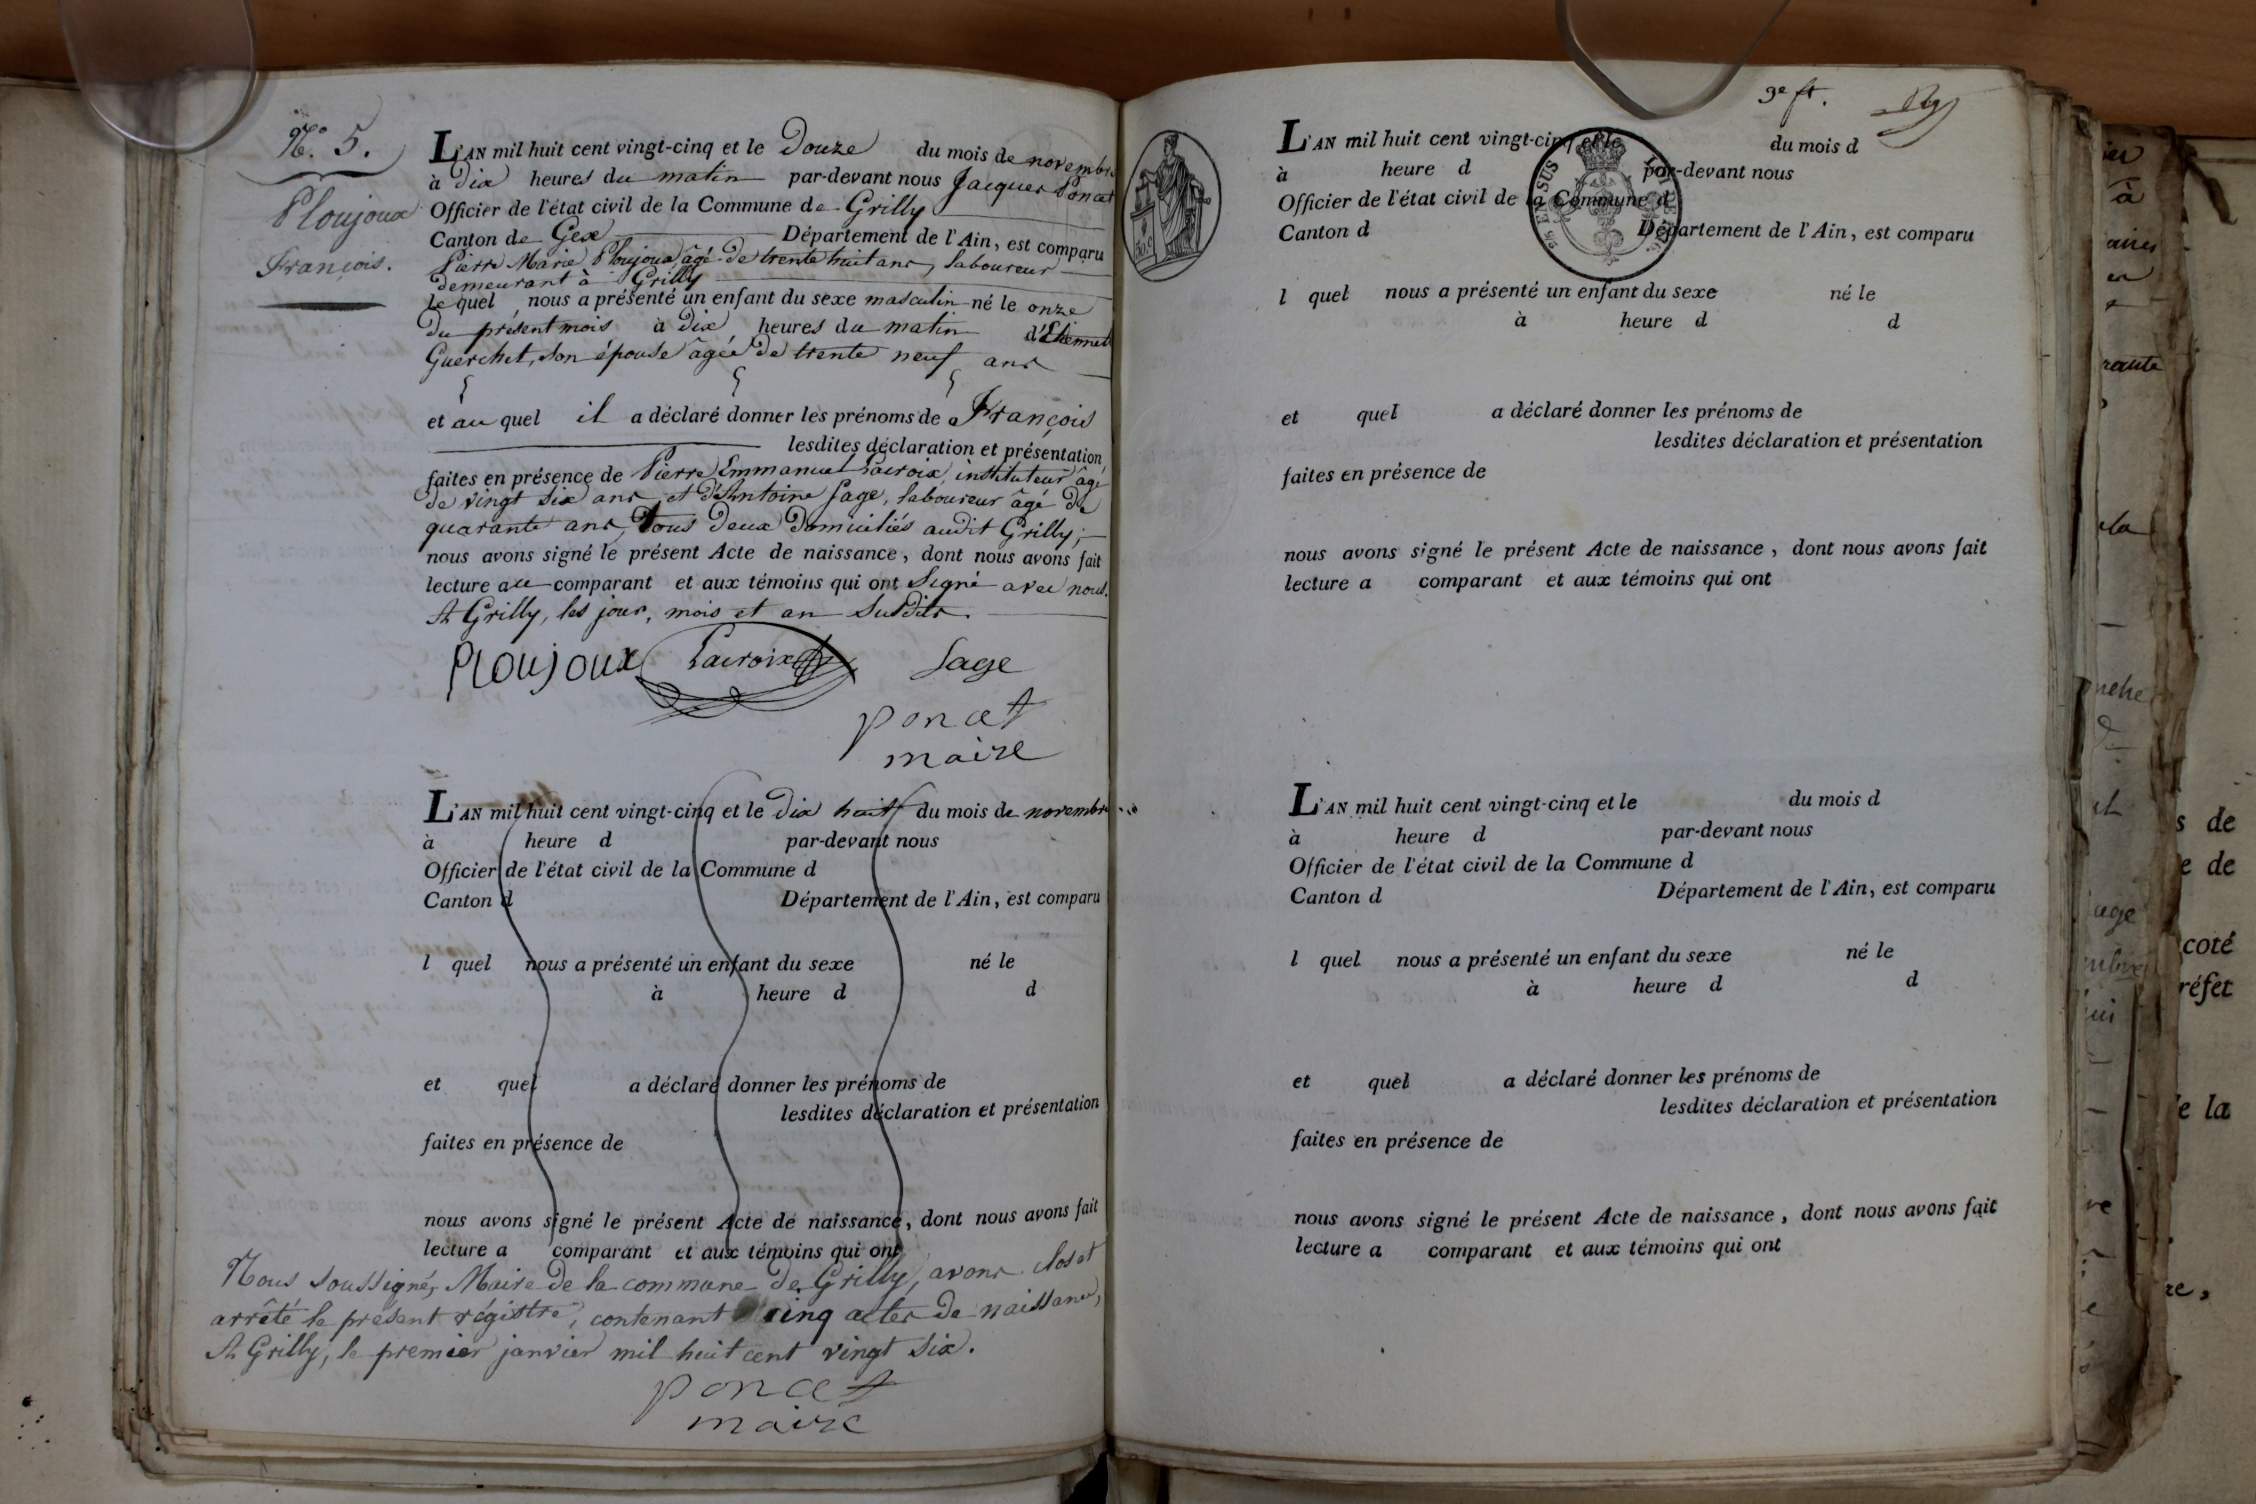 N.º 5.
Ploujoux
François.
L'AN mil huit cent vingt-cinq et le Douze du mois de novembre
à Dix heures du matin par-devant nous Jacques Poncet
Officier de l'état civil de la Commune de Grilly
Canton de Gex Département de l'Ain, est comparu
Pierre Marie Ploujoux âgé de trente huit ans, laboureur
demeurant à Grilly
Le quel nous a présenté un enfant du sexe masculin né le onze
du présent mois à Dix heures du matin d'Etiennet
Guerchet, son épouse âgée de trente neuf ans
et au quel il a déclaré donner les prénoms de François
lesdites déclaration et présentation
faites en présence de Pierre Emmanuel Lacroix, instituteur âgé
de vingt six ans, et d'Antoine Sage, laboureur âgé de
quarante ans, tous deux domiciliés audit Grilly;
nous avons signé le présent Acte de naissance, dont nous avons fait
lecture au comparant et aux témoins qui ont signé avec nous.
A Grilly, les jour, mois et an susdits.
Ploujoux Lacroix Sage
poncet
maire
L'AN mil huit cent vingt-cinq et le dix huit du mois de novembre
à heure d par-devant nous
Officier de l'état civil de la Commune d
Canton d Département de l'Ain, est comparu
l quel nous a présenté un enfant du sexe né le
à heure d d
et quel a déclaré donner les prénoms de
lesdites déclaration et présentation
faites en présence de
nous avons signé le présent Acte de naissance, dont nous avons fait
lecture a comparant et aux témoins qui ont
Nous soussigné, Maire de la commune de Grilly, avons clos et
arrêté le présent régistre, contenant cinq actes de naissance,
A Grilly, le premier janvier mil huit cent vingt six.
poncet
maire
3e ft.
L'AN mil huit cent vingt-cinq et le du mois d
à heure d par-devant nous
Officier de l'état civil de la Commune d
Canton d Département de l'Ain, est comparu
l quel nous a présenté un enfant du sexe né le
à heure d d
et quel a déclaré donner les prénoms de
lesdites déclaration et présentation
faites en présence de
nous avons signé le présent Acte de naissance, dont nous avons fait
lecture a comparant et aux témoins qui ont
L'AN mil huit cent vingt-cinq et le du mois d
à heure d par-devant nous
Officier de l'état civil de la Commune d
Canton d Département de l'Ain, est comparu
l quel nous a présenté un enfant du sexe né le
à heure d d
et quel a déclaré donner les prénoms de
lesdites déclaration et présentation
faites en présence de
nous avons signé le présent Acte de naissance, dont nous avons fait
lecture a comparant et aux témoins qui ont